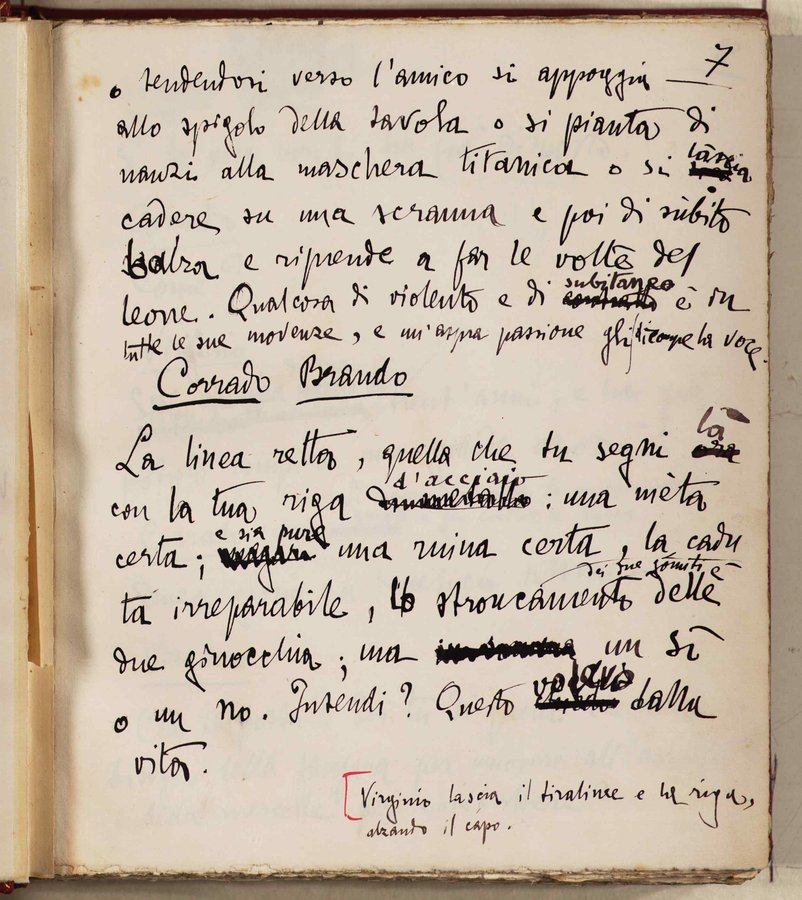 7
o tendendosi verso l'amico si appoggia
allo spigolo della tavola o si pianta di
nanzi alla maschera titanica o si lascia
cadere su una scranna e poi di sùbito
balza e riprende a far le volte del
leone. Qualcosa di violento e di subitaneo è in
tutte le sue movenze, e un'aspra passione gli rompe la voce.
Corrado Brando
La linea retta, quella che tu segni là
con la tua riga d'acciaio: una mèta
certa; e sia pure una ruina certa, la cadu
ta irreparabile, lo stroncamento dei due gomiti e delle
due ginocchia; ma un sì
o un no. Intendi? Questo voglio dalla
vita.
[Virginio lascia il tiralinee e la riga,
alzando il capo.